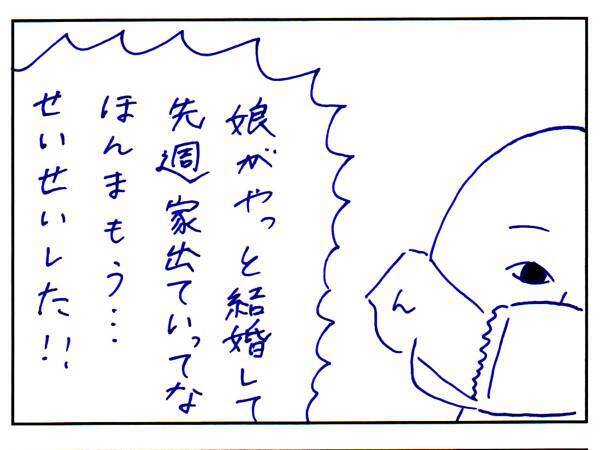 娘がやっと結婚して
先週家出ていってな
ほんまもう…
せいせいした!!
ん